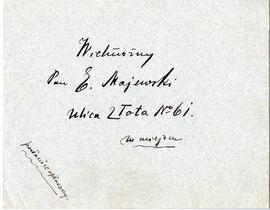 Wielmożny
Pan E. Majewski
Ulica Złota No 61.
w miejscu